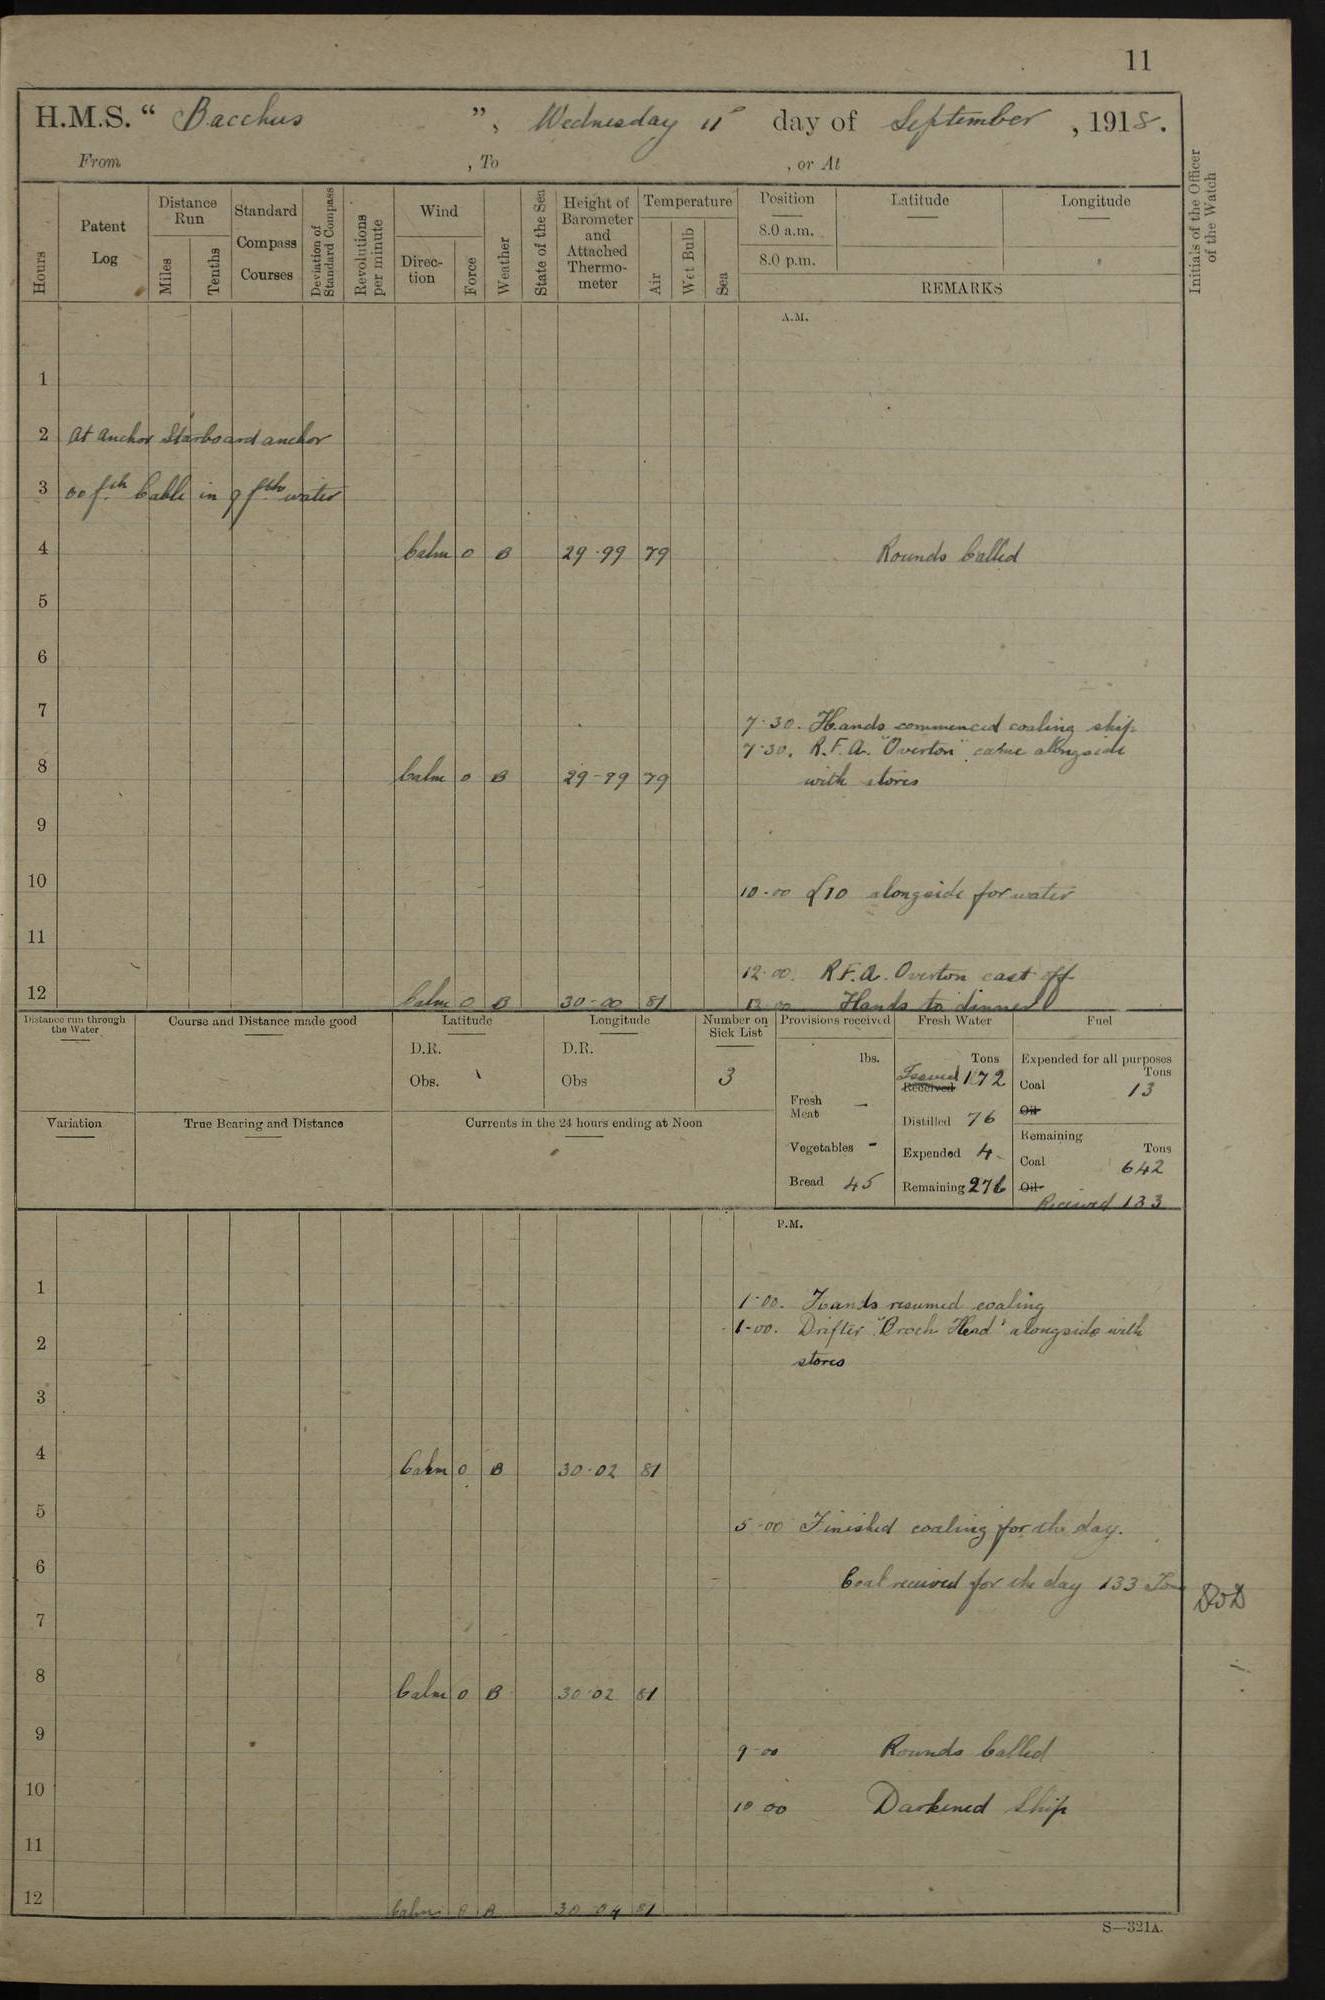 11
H.M.S. “ Bacchus ”, Wednesday 11th day of September , 1918.
From , To , or At
Hours
Patent Log
Distance Run
Miles
Tenths
Standard Compass Courses
Deviation of Standard Compass
Revolutions per minute
Wind
Direc-tion
Force
Weather
State of the Sea
Height of Barometer and Attached Thermo-meter
Temperature
Air
Wet Bulb
Sea
Position
8.0 a.m.
8.0 p.m.
Latitude
Longitude
REMARKS
Initials of the Officer of the Watch
A.M.
1
2 At Anchor Starboard anchor
3 fth Cable in 9 fths water
4 Calm 0 B 29.99 79 Rounds Called
5
6
7
7.30. Hands commenced coaling ship.
7.30. R.F.A. "Overton" came alongside
8 Calm 0 B 29-99 79 with stores
9
10 10-00 alongside for water
11
12.00. R.F.A. Overton cast off
12 Calm 0 B 30-00 81 12.00 Hands to dinner
Distance run through the Water
Course and Distance made good
Latitude
D.R.
Obs.
Longitude
D.R.
Obs
Number on Sick List
3
Provisions received
lbs.
Fresh Meat —
Vegetables -
Bread 45
Fresh Water
Tons
Issued Received 172
Distilled 76
Expended 4
Remaining 276
Fuel
Expended for all purposes
Tons
Coal 13
Oil
Remaining
Tons
Coal 642
Oil
Received 133
Variation
True Bearing and Distance
Currents in the 24 hours ending at Noon
P.M.
1 1-00. Hands resumed coaling
1-00. Drifter "Broch Head" alongside with
2 stores
3
4 Calm 0 B 30-02 81
5 5-00 Finished coaling for the day.
6 Coal received for the day 133 Tons
7
8 Calm 0 B 30.02 81
9 9-00 Rounds Called
10 10 00 Darkened Ship
11
12 Calm 0 B 30 04 81
S—321A.